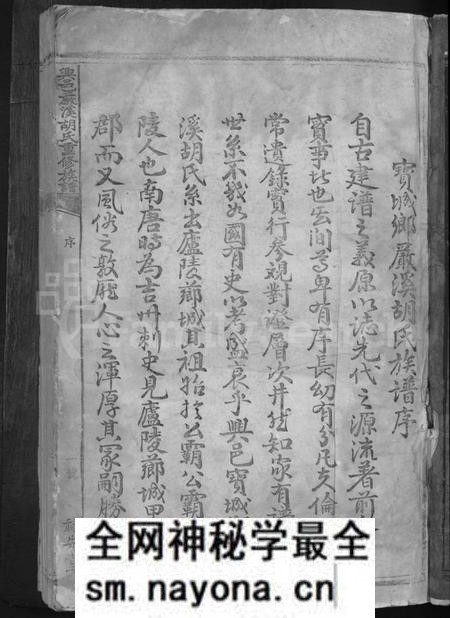 寶城鄉嚴溪胡氏族譜序
自古建譜之義原以誌先代之源流著前
實事比也玄间尊卑有序長幼有分凡人倫
常遺錄實行參視對證層次井然知家有譜
世系不幾如國有史以考盛衰乎興邑寶城
溪胡氏系出廬陵薌城其祖始於公霸公霸
陵人也南唐時為吉州刺史見廬陵薌城甲
郡而又風俗之敦龐人心之渾厚其冢嗣勝
興邑嚴溪胡氏重修族譜
序
全网神秘学最全
sm.nayona.cn